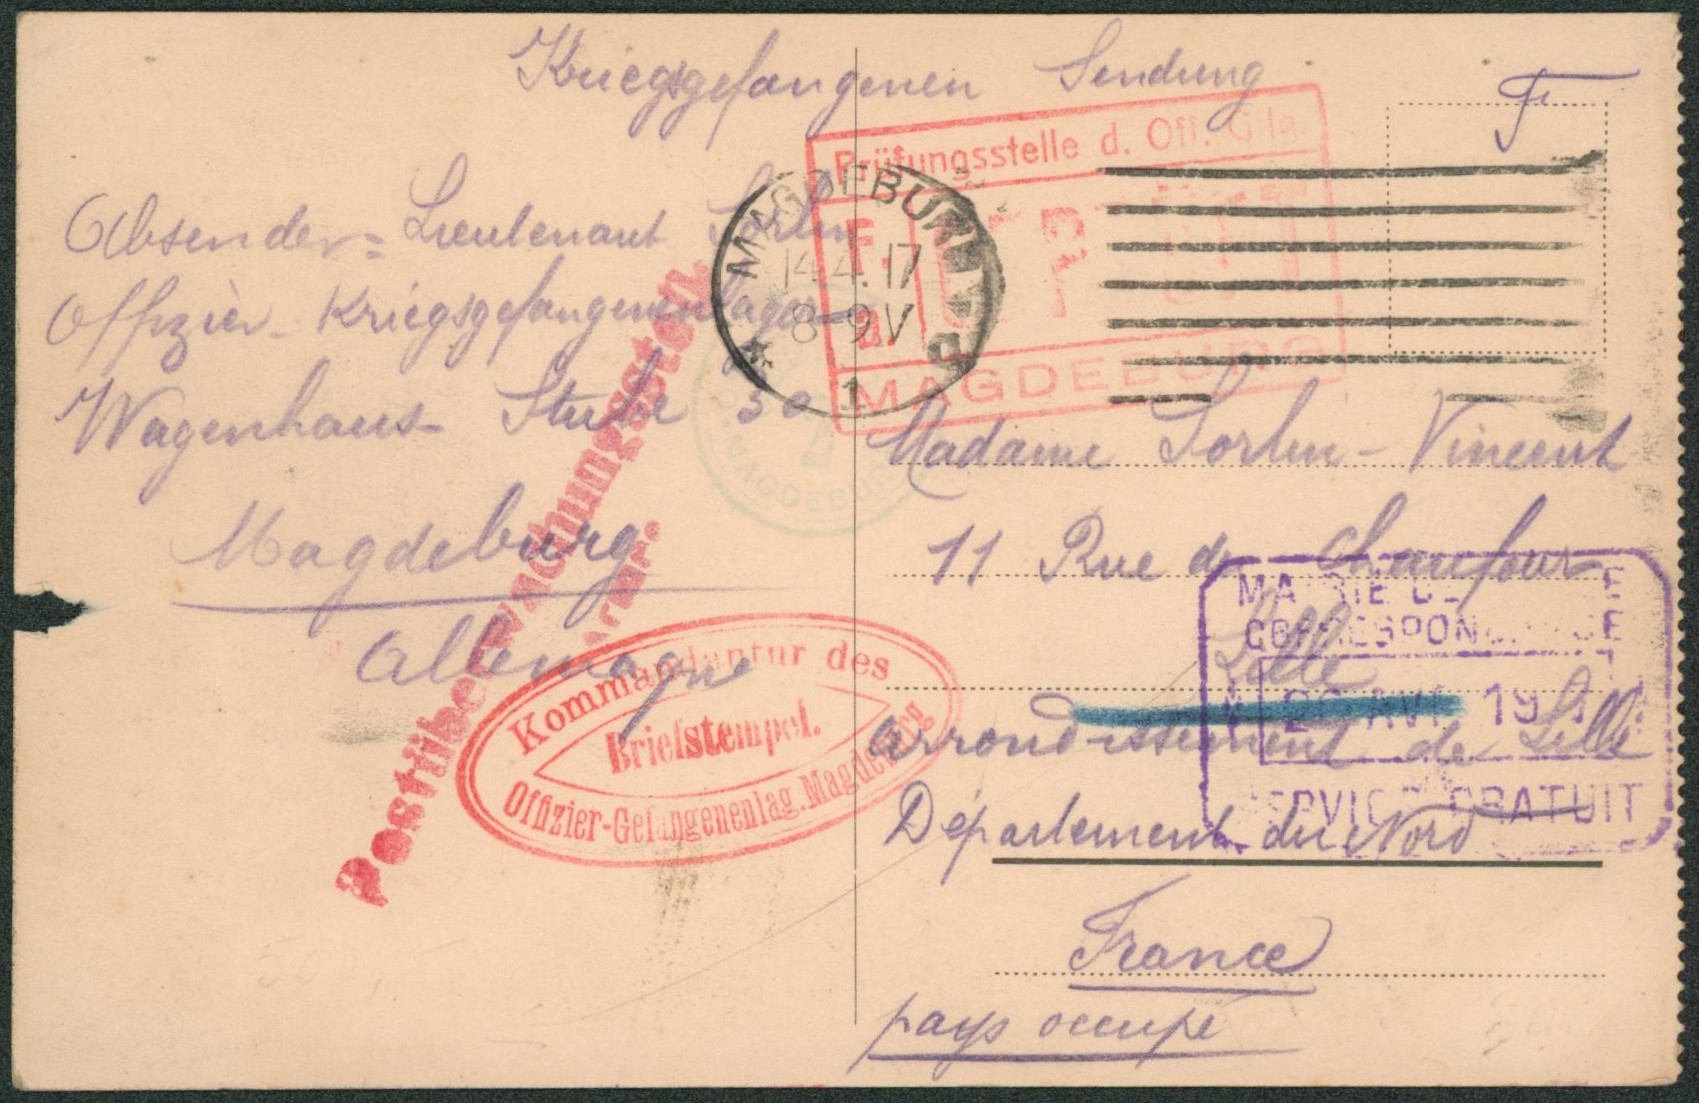 Kriegsgefangenen Sendung
F
Absender = Lieutenant Sorlin
Offizier - Kriegsgefangenenlager
Wagenhaus - Stube 30
Magdeburg
Allemagne
Prüfungsstelle d. Off. G lg.
F. a.
MAGDEBURG
MAGDEBURG
14.4.17
8-9V
* 1 a
MAGDEBURG
Postüberwachungsstelle
Kommandantur des
Briefstempel.
Offizier-Gefangenenlag. Magdeburg
Madame Sorlin - Vincent
11 Rue de Chaufour
Lille
arrondissement de Lille
Département du Nord
France
pays occupé
MAIRIE DE LILLE
CORRESPONDANCE
AVR 19
SERVICE GRATUIT